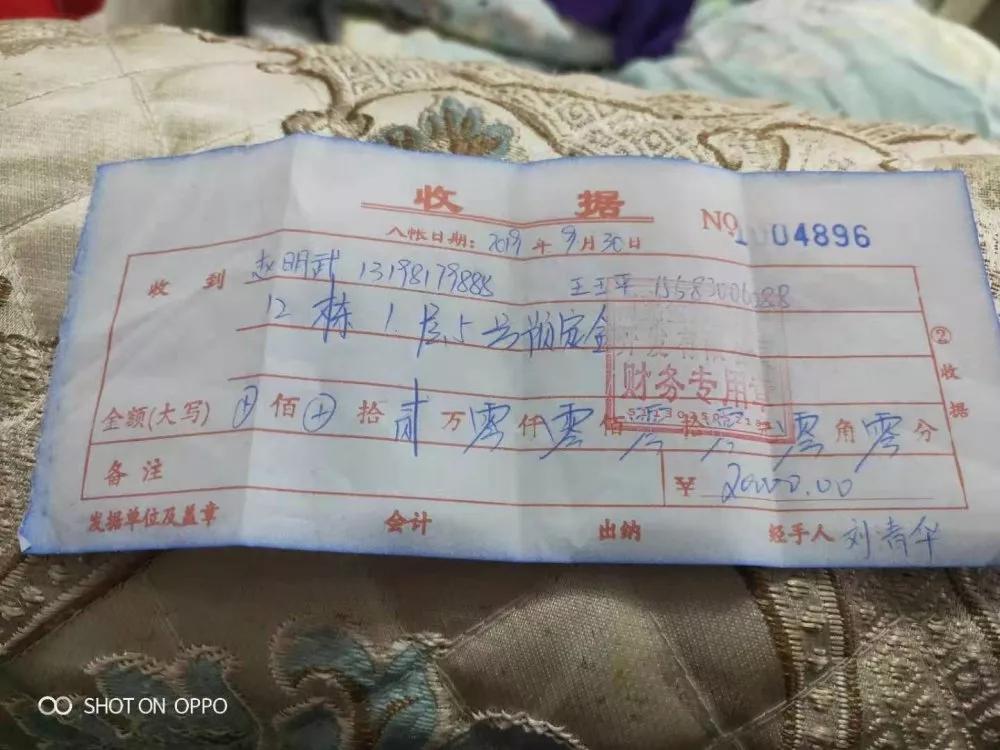 收 据
NO 1004896
入帐日期：2019年9月30日
收 到 赵明武 13198179888 王玉平 15583006888
12栋1.层5号预定金
开发有限公司
财务专用章
金额(大写) 佰 拾 贰 万 零 仟 零 佰 零 拾 零 零 角 零 分
备 注
¥ 20000.00
发据单位及盖章 会计 出纳 经手人 刘清华
② 收 据
SHOT ON OPPO